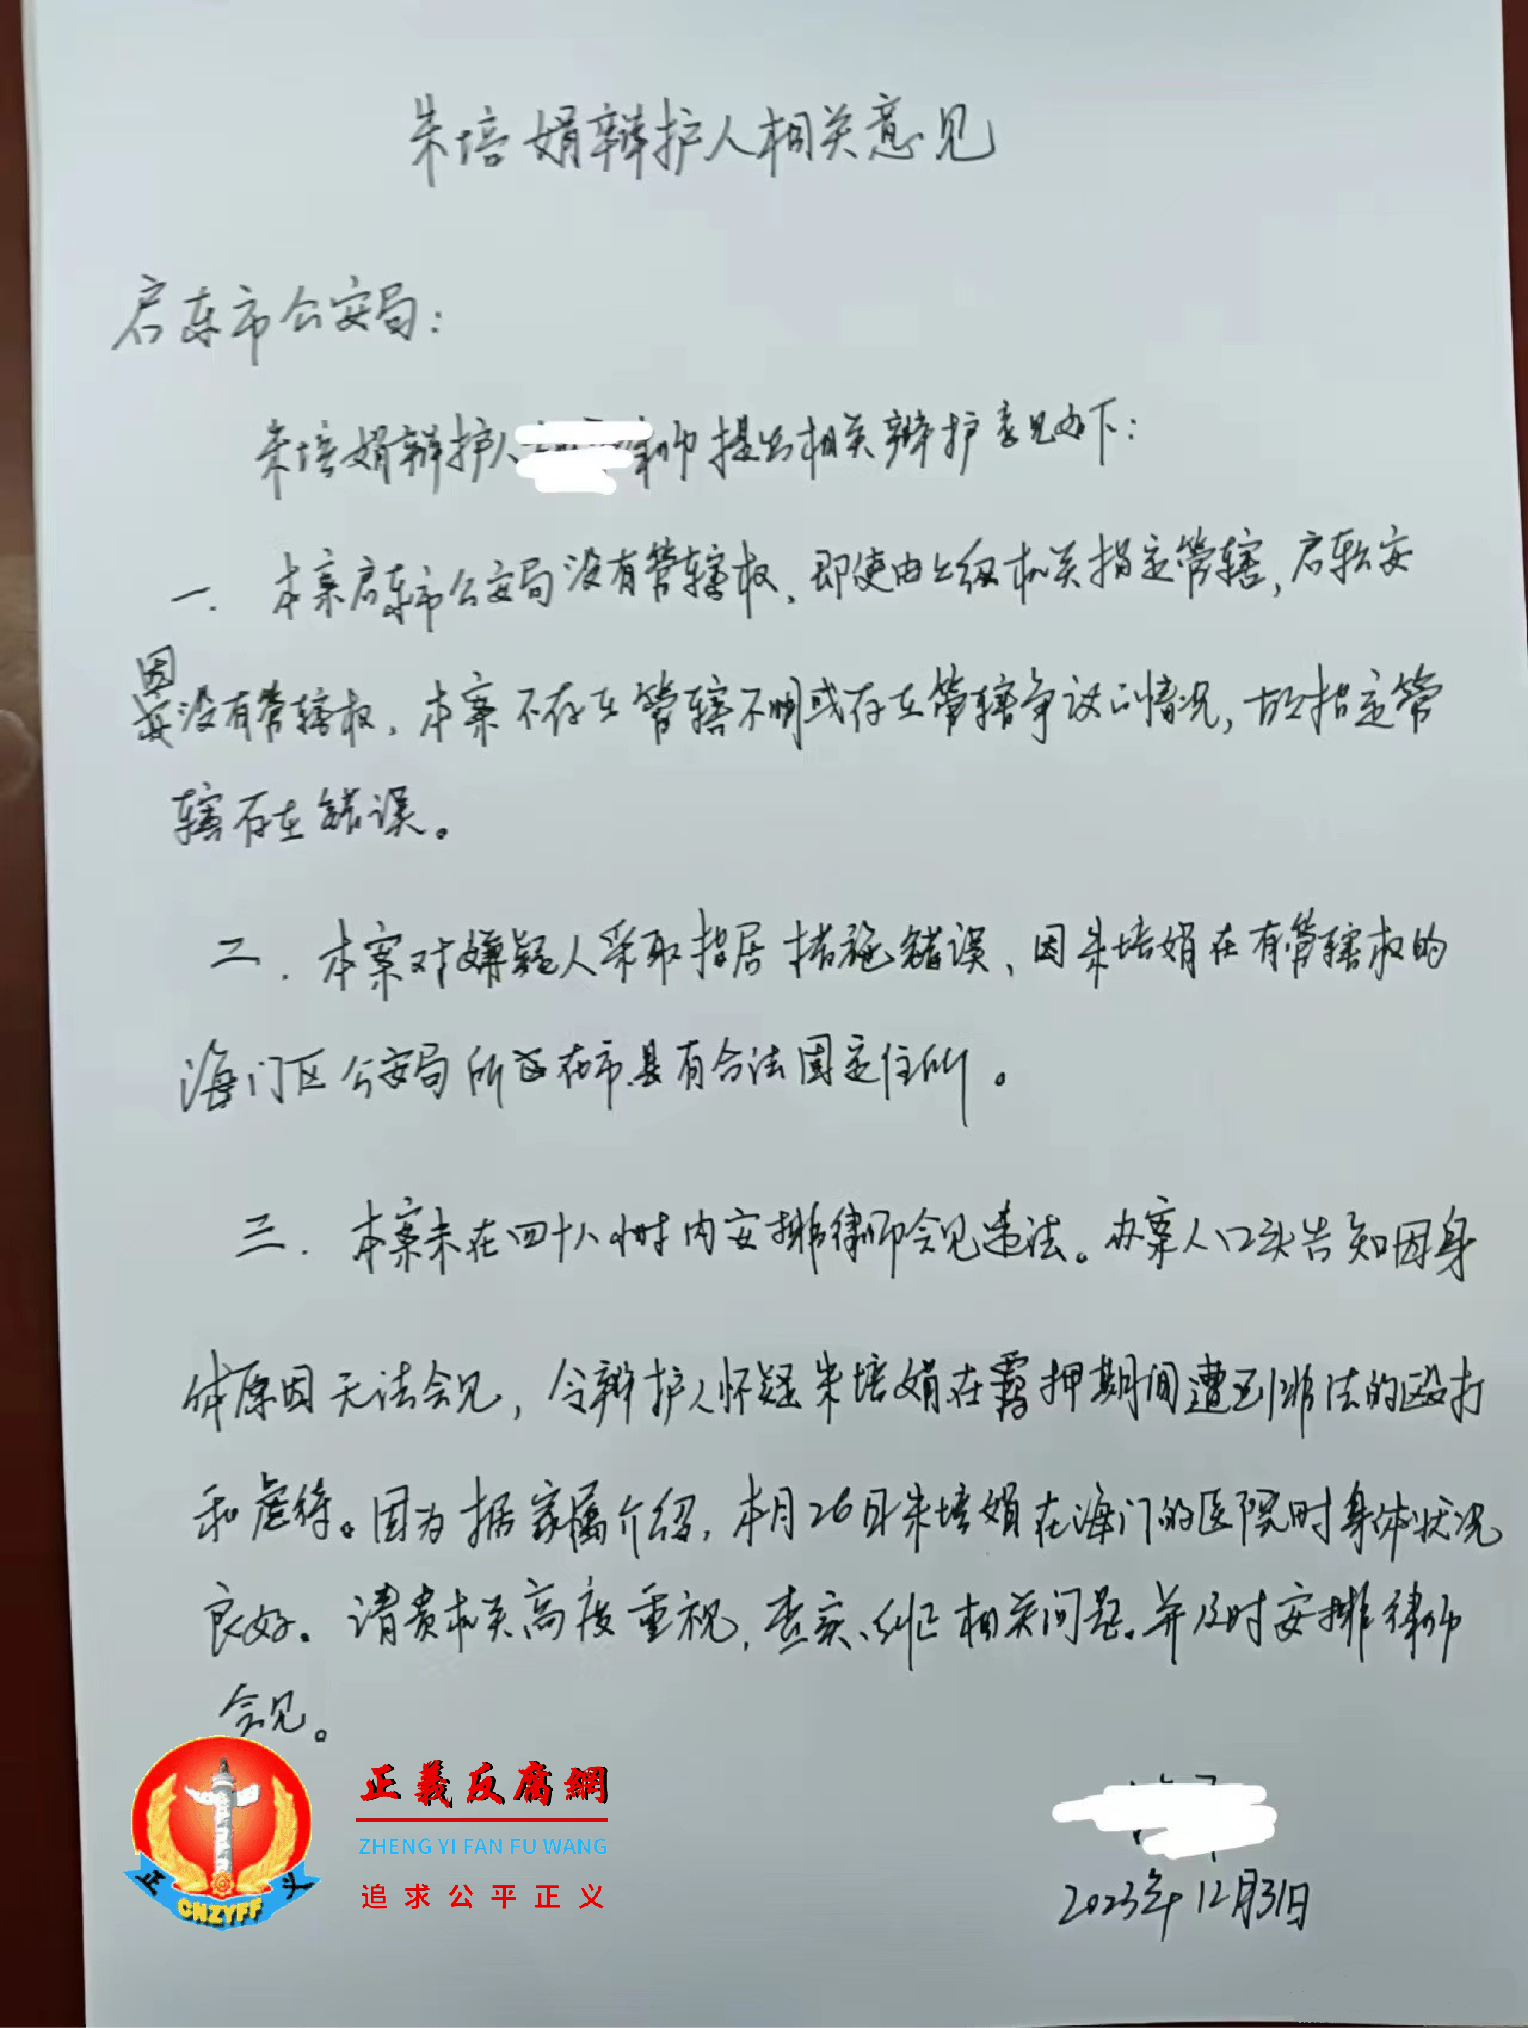 朱培娟辩护人相关意见
启东市公安局：
朱培娟辩护人 律师提出相关辩护意见如下：
一. 本案启东市公安局没有管辖权，即使由上级机关指定管辖，启东公安
因
没有管辖权，本案不存在管辖不明或存在管辖争议的情况，故指定管
辖存在错误。
二. 本案对嫌疑人采取指居措施错误，因朱培娟在有管辖权的
海门区公安局所在市.县有合法固定住所。
三. 本案未在四十八小时内安排律师会见违法。办案人口头告知因身
体原因无法会见，令辩护人怀疑朱培娟在羁押期间遭到非法的殴打
和虐待。因为据家属介绍，本月26日朱培娟在海门的医院时身体状况
良好。请贵机关高度重视，查实、纠正相关问题。并及时安排律师
会见。
2023年12月31日
正義反腐網
ZHENG YI FAN FU WANG
追求公平正义
正 义
CNZYFF